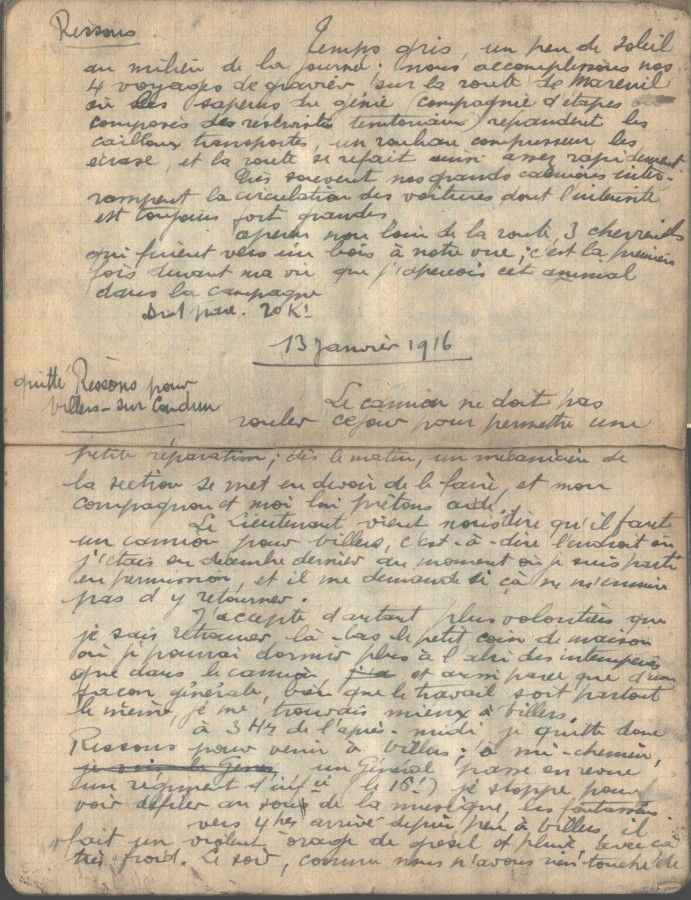 Ressons
Temps gris, un peu de soleil
au milieu de la journé. nous accomplissons nos
4 voyages de gravier sur la route de Mareuil
où des sapeurs du génie (compagnie d'étapes
composés des réservistes territoriaux) répandent les
cailloux transportés, un rouleau compresseur les
écrase, et la route se refait ainsi assez rapidement
Très souvent nos grands camions inter-
rompent la circulation des voitures dont l'intensité
est toujours fort grandes
aperçu non loin de la route, 3 chevreuils
qui fuient vers un bois à notre vue; c'est la première
fois durant ma vie que j'aperçois cet animal
dans la campagne
20 K.
13 Janvier 1916
quitté Ressons pour
Villers-sur Coudun
Le camion ne doit pas
rouler ce jour pour permettre une
petite réparation; dès le matin, un mécanicien de
la section se met en devoir de le faire, et mon
compagnon et moi lui prêtons aide.
Le Lieutenant vient nous dire qu'il faut
un camion pour Villers, c'est-à-dire l'endroit où
j'étais en décembre dernier au moment où je suis parti
en permission, et il me demande si çà ne m'ennuie
pas d'y retourner.
J'accepte d'autant plus volontiers que
je sais retrouver là-bas le petit coin de maison
où je pourrai dormir plus à l'abri des intempéries
que dans le camion, et aussi parce que d'une
façon générale, bien que le travail soit partout
le même, je me trouvais mieux à Villers.
à 3 Hs de l'après-midi, je quitte donc
Ressons pour venir à Villers; à mi-chemin,
un Général passe en revue
un régiment d'inf ie (le 16e) je stoppe pour
voir défiler au son de la musique, les fantassins.
vers 4 hes arrivé depuis peu à Villers il
fait un violent orage de grésil et pluie, avec çà
très froid. Le soir, comme nous n'avons rien touché de